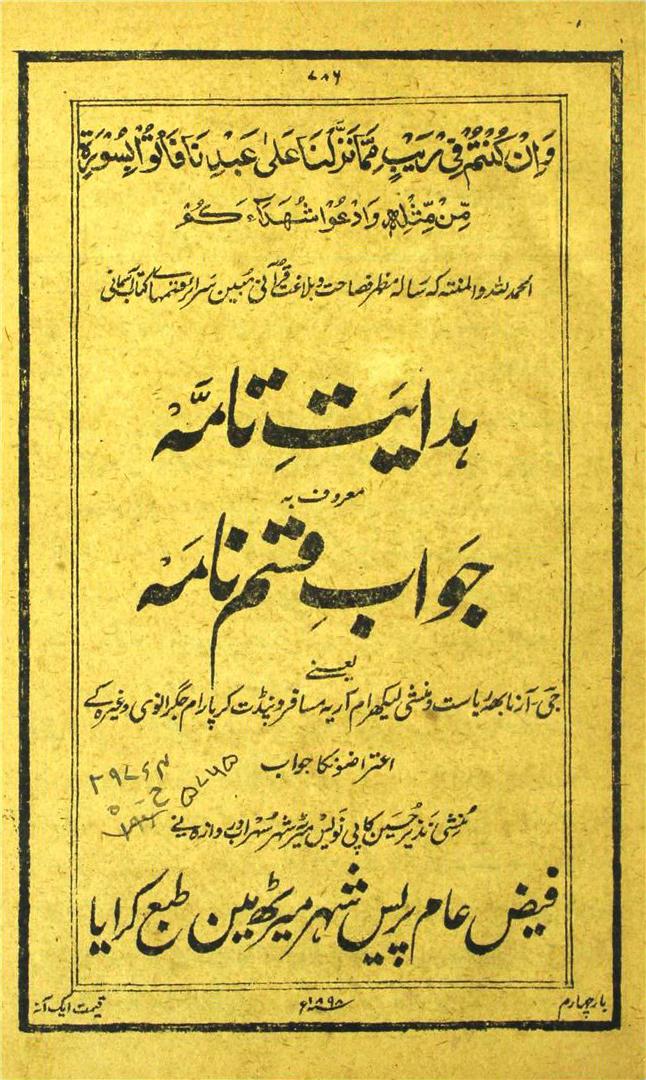 ۷۸۶
وَاِنْ كُنْتُمْ فِیْ رَیْبٍ مِّمَّا نَزَّلْنَا عَلٰی عَبْدِنَا فَاْتُوْا بِسُوْرَةٍ
مِّنْ مِّثْلِهٖ وَادْعُوْا شُهَدَآءَكُمْ
الحمد للہ والمنتہ کہ رسالۂ مظہر فصاحت و بلاغت قرآنی مبین سرائر قسمہائے کتاب آسمانی
ہدایتِ تامّہ
معروف بہ
جوابِ قسم نامہ
یعنے
جی۔ آر نابھہ ریاست و منشی لیکھرام آریہ مسافر و پنڈت کرپارام جگرانوی وغیرہ کے
اعتراضونکا جواب
۲۹۷۶۴
۵۷۶۵
ح
منشی نذیر حسین کاپی نویس میرٹھ شہر سہراب دروازہ نے
فیض عام پریس شہر میرٹھ مین طبع کرایا
بار چہارم
۱۸۹۸ء
قیمت ایک آنہ